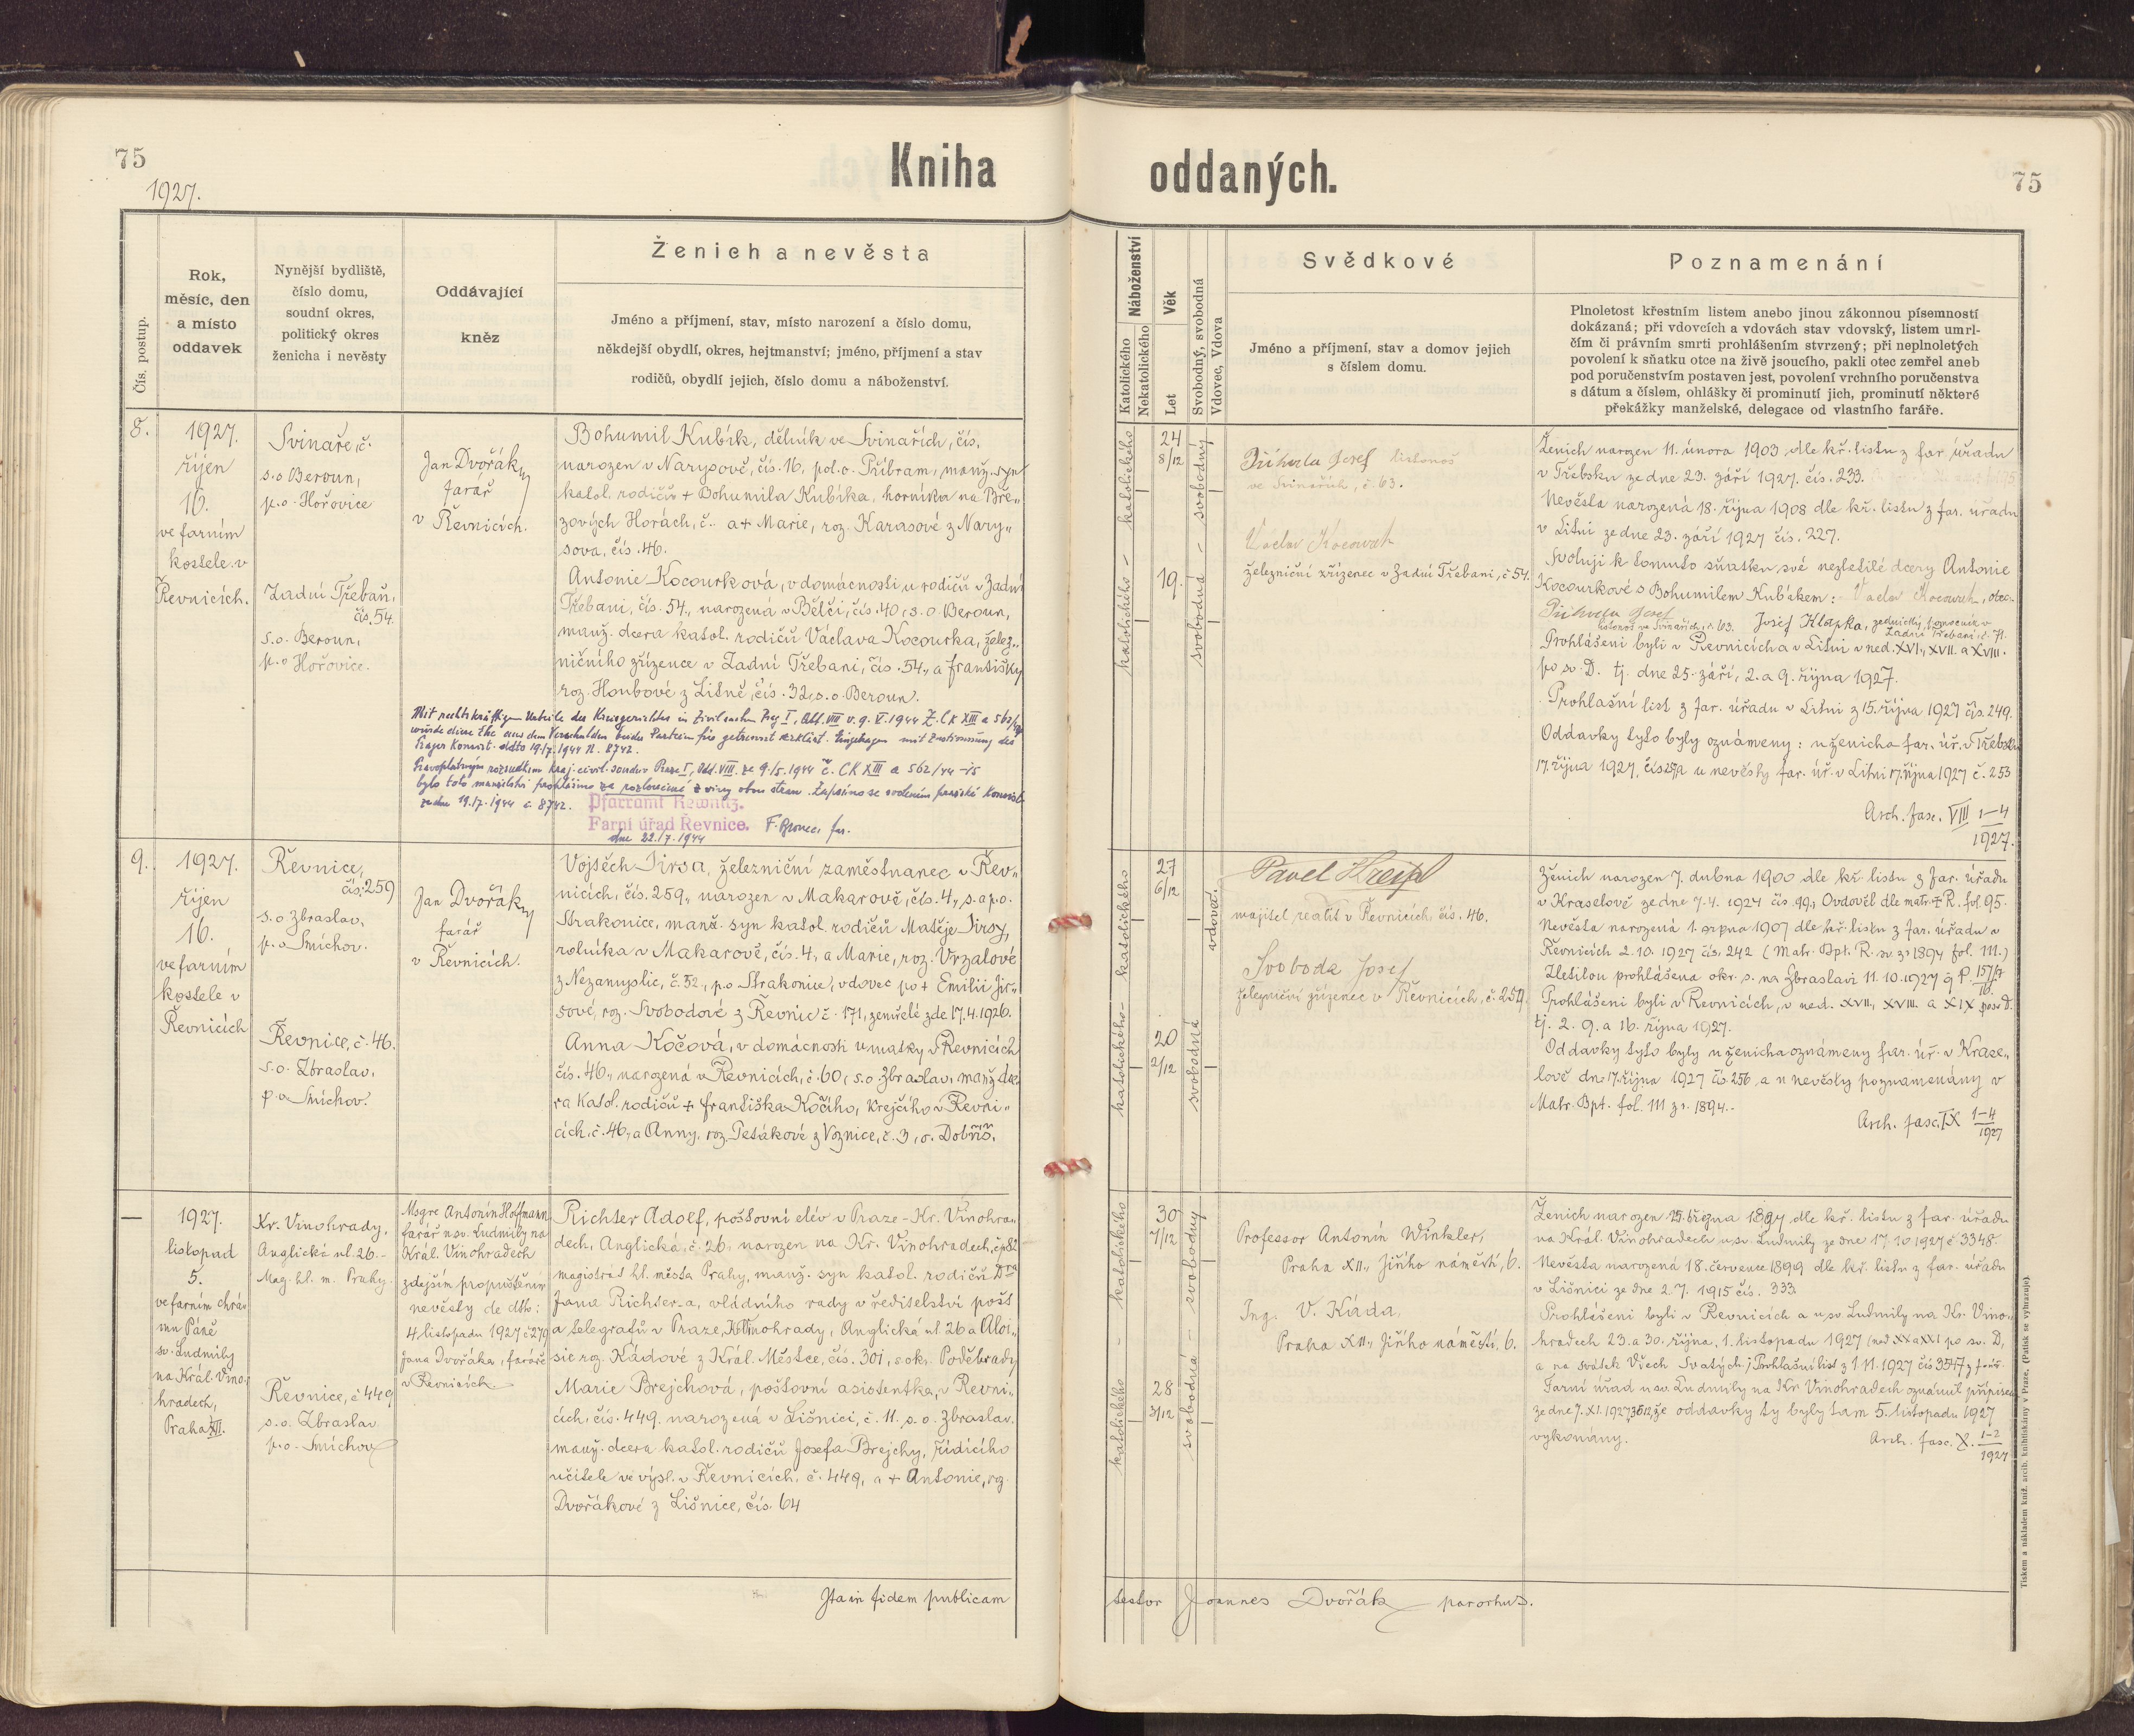 75
1927.
Kniha
oddaných.
75
Čís. postup.
Rok,
měsíc, den
a místo
oddavek
Nynější bydliště,
číslo domu,
soudní okres,
politický okres
ženicha i nevěsty
Oddávající
kněz
Ženich a nevěsta
Jméno a příjmení, stav, místo narození a číslo domu,
někdejší obydlí, okres, hejtmanství; jméno, příjmení a stav
rodičů, obydlí jejich, číslo domu a náboženství.
Náboženství
Katolického
Nekatolického
Věk
Let
Svobodný, svobodná
Vdovec, Vdova
Svědkové
Jméno a příjmení, stav a domov jejich
s číslem domu.
Poznamenání
Plnoletost křestním listem anebo jinou zákonnou písemností
dokázaná; při vdovcích a vdovách stav vdovský, listem umrl-
čím či právním smrti prohlášením stvrzený; při neplnoletých
povolení k sňatku otce na živě jsoucího, pakli otec zemřel aneb
pod poručenstvím postaven jest, povolení vrchního poručenstva
s dátum a číslem, ohlášky či prominutí jich, prominutí některé
překážky manželské, delegace od vlastního faráře.
8.
1927.
říjen
16.
ve farním
kostele v
Řevnicích.
Svinaře, č.
s.o Beroun,
p.o. Hořovice
Zadní Třebaň,
čís. 54.
s.o. Beroun,
p.o Hořovice.
Jan Dvořák
farář
v Řevnicích.
Bohumil Kubík, dělník ve Svinařích, čís.
narozen v Narysově, čís. 16, pol. o. Příbram, manž. syn
katol. rodičů + Bohumila Kubíka, horníka na Bře„
zových Horách, č.. a + Marie, roz. Karasové z Nary„
sova, čís. 46.
Antonie Kocourková, v domácnosti u rodičů v Zadní
Třebani, čís. 54., narozena v Bělči, čís. 40, s. o. Beroun,
manž. dcera katol. rodičů Václava Kocourka, želez„
ničního zřízence v Zadní Třebani, čís. 54., a Františky
roz. Houbové z Litně, čís. 32, s. o. Beroun.
Mit rechtskräftigem Urteile des Kreisgerichtes in Zivilsachen Prag I, Abt. VIII v. 9. V. 1944 Z. CK XIII a 562/44
wurde diese Ehe aus dem Verschulden beider Parteien für getrennt erklärt. Eingetragen mit Zustimmung des
Prager Konsist. ddto 19.17. 1944 N. 8742.
Pravoplatným rozsudkem kraj. civil. soudu v Praze I, Odd. VIII. ze 9./5. 1944 č. CK XIII a 562/44 -15
bylo toto manželství prohlášeno za rozloučené z viny obou stran. Zapsáno se svolením pražské konsist.
ze dne 19./7. 1944 č. 8742.
Pfarramt Rewnitz.
Farní úřad Řevnice.
dne 22./7. 1944
far.
katolického - katolického
24
8/12
19.
svobodný
svobodná
Příhoda Josef listonoš
ve Svinařích, č. 63.
Václav Kocourek
železniční zřízenec v Zadní Třebani, č 54.
Ženich narozen 11. února 1903 dle kř. listu z far. úřadu
v Třebsku ze dne 23. září 1927. čís. 233.
Nevěsta narozená 18. října 1908 dle kř. listu z far. úřadu
v Litni ze dne 23. září 1927 čís. 227.
Svoluji k tomuto sňatku své nezletilé dcery Antonie
Kocourkové s Bohumilem Kubíkem: Václav Kocourek, otec.
Příhoda Josef
listonoš ve Svinařích, č. 63. Josef Klapka, zednický pomocník v
Zadní Třebani, č. 71.
Prohlášeni byli v Řevnicích a v Litni v ned. XVI., XVII. a XVIII.
po sv. D. tj. dne 25. září, 2. a 9. října 1927.
Prohlašní list z far. úřadu v Litni z 15. října 1927 čís. 249.
Oddavky tyto byly oznámeny: u ženicha far. úř. v Třebsku
17. října 1927, čís a u nevěsty far. úř. v Litni 17. října 1927 č. 253
Arch. fasc. VIII 1-4
1927.
9.
1927.
říjen
16.
ve farním
kostele v
Řevnicích
Řevnice,
čís. 259
s. o Zbraslav,
p. o Smíchov.
Řevnice, č. 46.
s. o. Zbraslav,
p. o. Smíchov.
Jan Dvořák
farář
v Řevnicích.
Vojtěch Jirsa, železniční zaměstnanec v Řev„
nicích, čís. 259., narozen v Makarově, čís. 4., s. a p. o.
Strakonice, manž. syn katol. rodičů Matěje Jirsy,
rolníka v Makarově, čís. 4., a Marie, roz. Vrzalové
z Nezamyslic, č. 52., p. o Strakonice, vdovec po + Emilii Jir„
sové, roz. Svobodové z Řevnic č. 171, zemřelé zde 17. 4. 1926.
Anna Kočová, v domácnosti u matky v Řevnicích
čís. 46., narozená v Řevnicích, č. 60, s. o. Zbraslav, manž. dce„
ra katol. rodičů + Františka Kočího, krejčího v Řevni„
cích, č. 46, a Anny, roz. Petákové z Voznice, č. 3, o. Dobříš.
katolického - katolického
27
6/12
20
2/12
vdovec.
svobodná
Pavel
majitel realit v Řevnicích, čís. 46.
Svoboda Josef
železniční zřízenec v Řevnicích, č. 254.
Ženich narozen 7. dubna 1900 dle kř. listu z far. úřadu
v Kraselově ze dne 7. 4. 1924 čís. 99., Ovdověl dle matr. + R. fol. 95.
Nevěsta narozená 1. srpna 1907 dle kř. listu z far. úřadu v
Řevnicích 2. 10. 1927 čís. 242 (Matr. Bpt. R. sv. z r 1894 fol. 111.)
Zletilou prohlášena okr. s. na Zbraslavi 11. 10. 1927 P. 157/17
16.
Prohlášeni byli v Řevnicích, v ned. XVII, XVIII. a XIX po sv D.
tj. 2. 9. a 16. října 1927.
Oddavky tyto byly u ženicha oznámeny far. úř. v Krase„
lově dne 17. října 1927 čís 256, a u nevěsty poznamenány v
Matr. Bpt. fol. 111 z r. 1894..
Arch. fasc. IX 1-4
1927
—
1927.
listopad
5.
ve farním chrá„
mu Páně
sv. Ludmily
na Král. Vino„
hradech,
Praha XII.
Kr. Vinohrady,
Anglická ul. 26.-
Mag. hl. m. Prahy.
Řevnice, č 449
s. o. Zbraslav
p. o. Smíchov
Msgre Antonín Hoffmann
farář u sv. Ludmily na
Král. Vinohradech
zdejším propuštěním
nevěsty de dto:
4 listopadu 1927 č 279
Jana Dvořáka, faráře
v Řevnicích.
Richter Adolf, poštovní elév v Praze-Kr. Vinohra„
dech, Anglická, č. 26, narozen na Kr. Vinohradech, čp 82
magistrát hl. města Prahy, manž. syn katol. rodičů Dra
Jana Richter-a, vládního rady v ředitelství pošt
a telegrafů v Praze, Kr. Vinohrady, Anglická ul. 26 a Aloi„
sie roz. Kádové z Král. Městce, čís. 301, s. ok. Poděbrady
Marie Brejchová, poštovní asistentka, v Řevni„
cích, čís. 449, narozená v Líšnici, č. 11. s. o. Zbraslav.
manž. dcera katol. rodičů Josefa Brejchy, řídícího
učitele ve výsl. v Řevnicích, č. 449, a + Antonie, roz.
Dvořákové z Líšnice, čís. 64
katolického - katolického
30
7/12
28
3/12
svobodný
svobodná
Professor Antonín Winkler,
Praha XII., Jiřího náměstí, 6.
Ing. V. Káda,
Praha XII., Jiřího náměstí, 6.
Ženich narozen 25. března 1897, dle kř. listu z far. úřadu
na Král. Vinohradech u sv. Ludmily ze dne 17. 10 1927 č 3348.
Nevěsta narozená 18. července 1899 dle kř. listu z far. úřadu
v Líšnici ze dne 2. 7. 1915 čís. 333.
Prohlášeni byli v Řevnicích a u sv. Ludmily na Kr. Vino„
hradech 23. a 30. října, 1. listopadu 1927 (ned. XX a XXI po sv. D,
a na svátek Všech Svatých.) Prohlašní list z 1. 11. 1927 čís 3547 z far.
Farní úřad u sv. Ludmily na Kr. Vinohradech oznámil přípisem
ze dne 7. XI. 1927, že oddavky ty byly tam 5. listopadu 1927
vykonány.
Arch. fasc. X. 1-2
1927
Ita in fidem publicam
testor Joannes Dvořák parochus.
Tiskem a nákladem kníž. arcib. knihtiskárny v Praze. (Patisk se vyhrazuje).